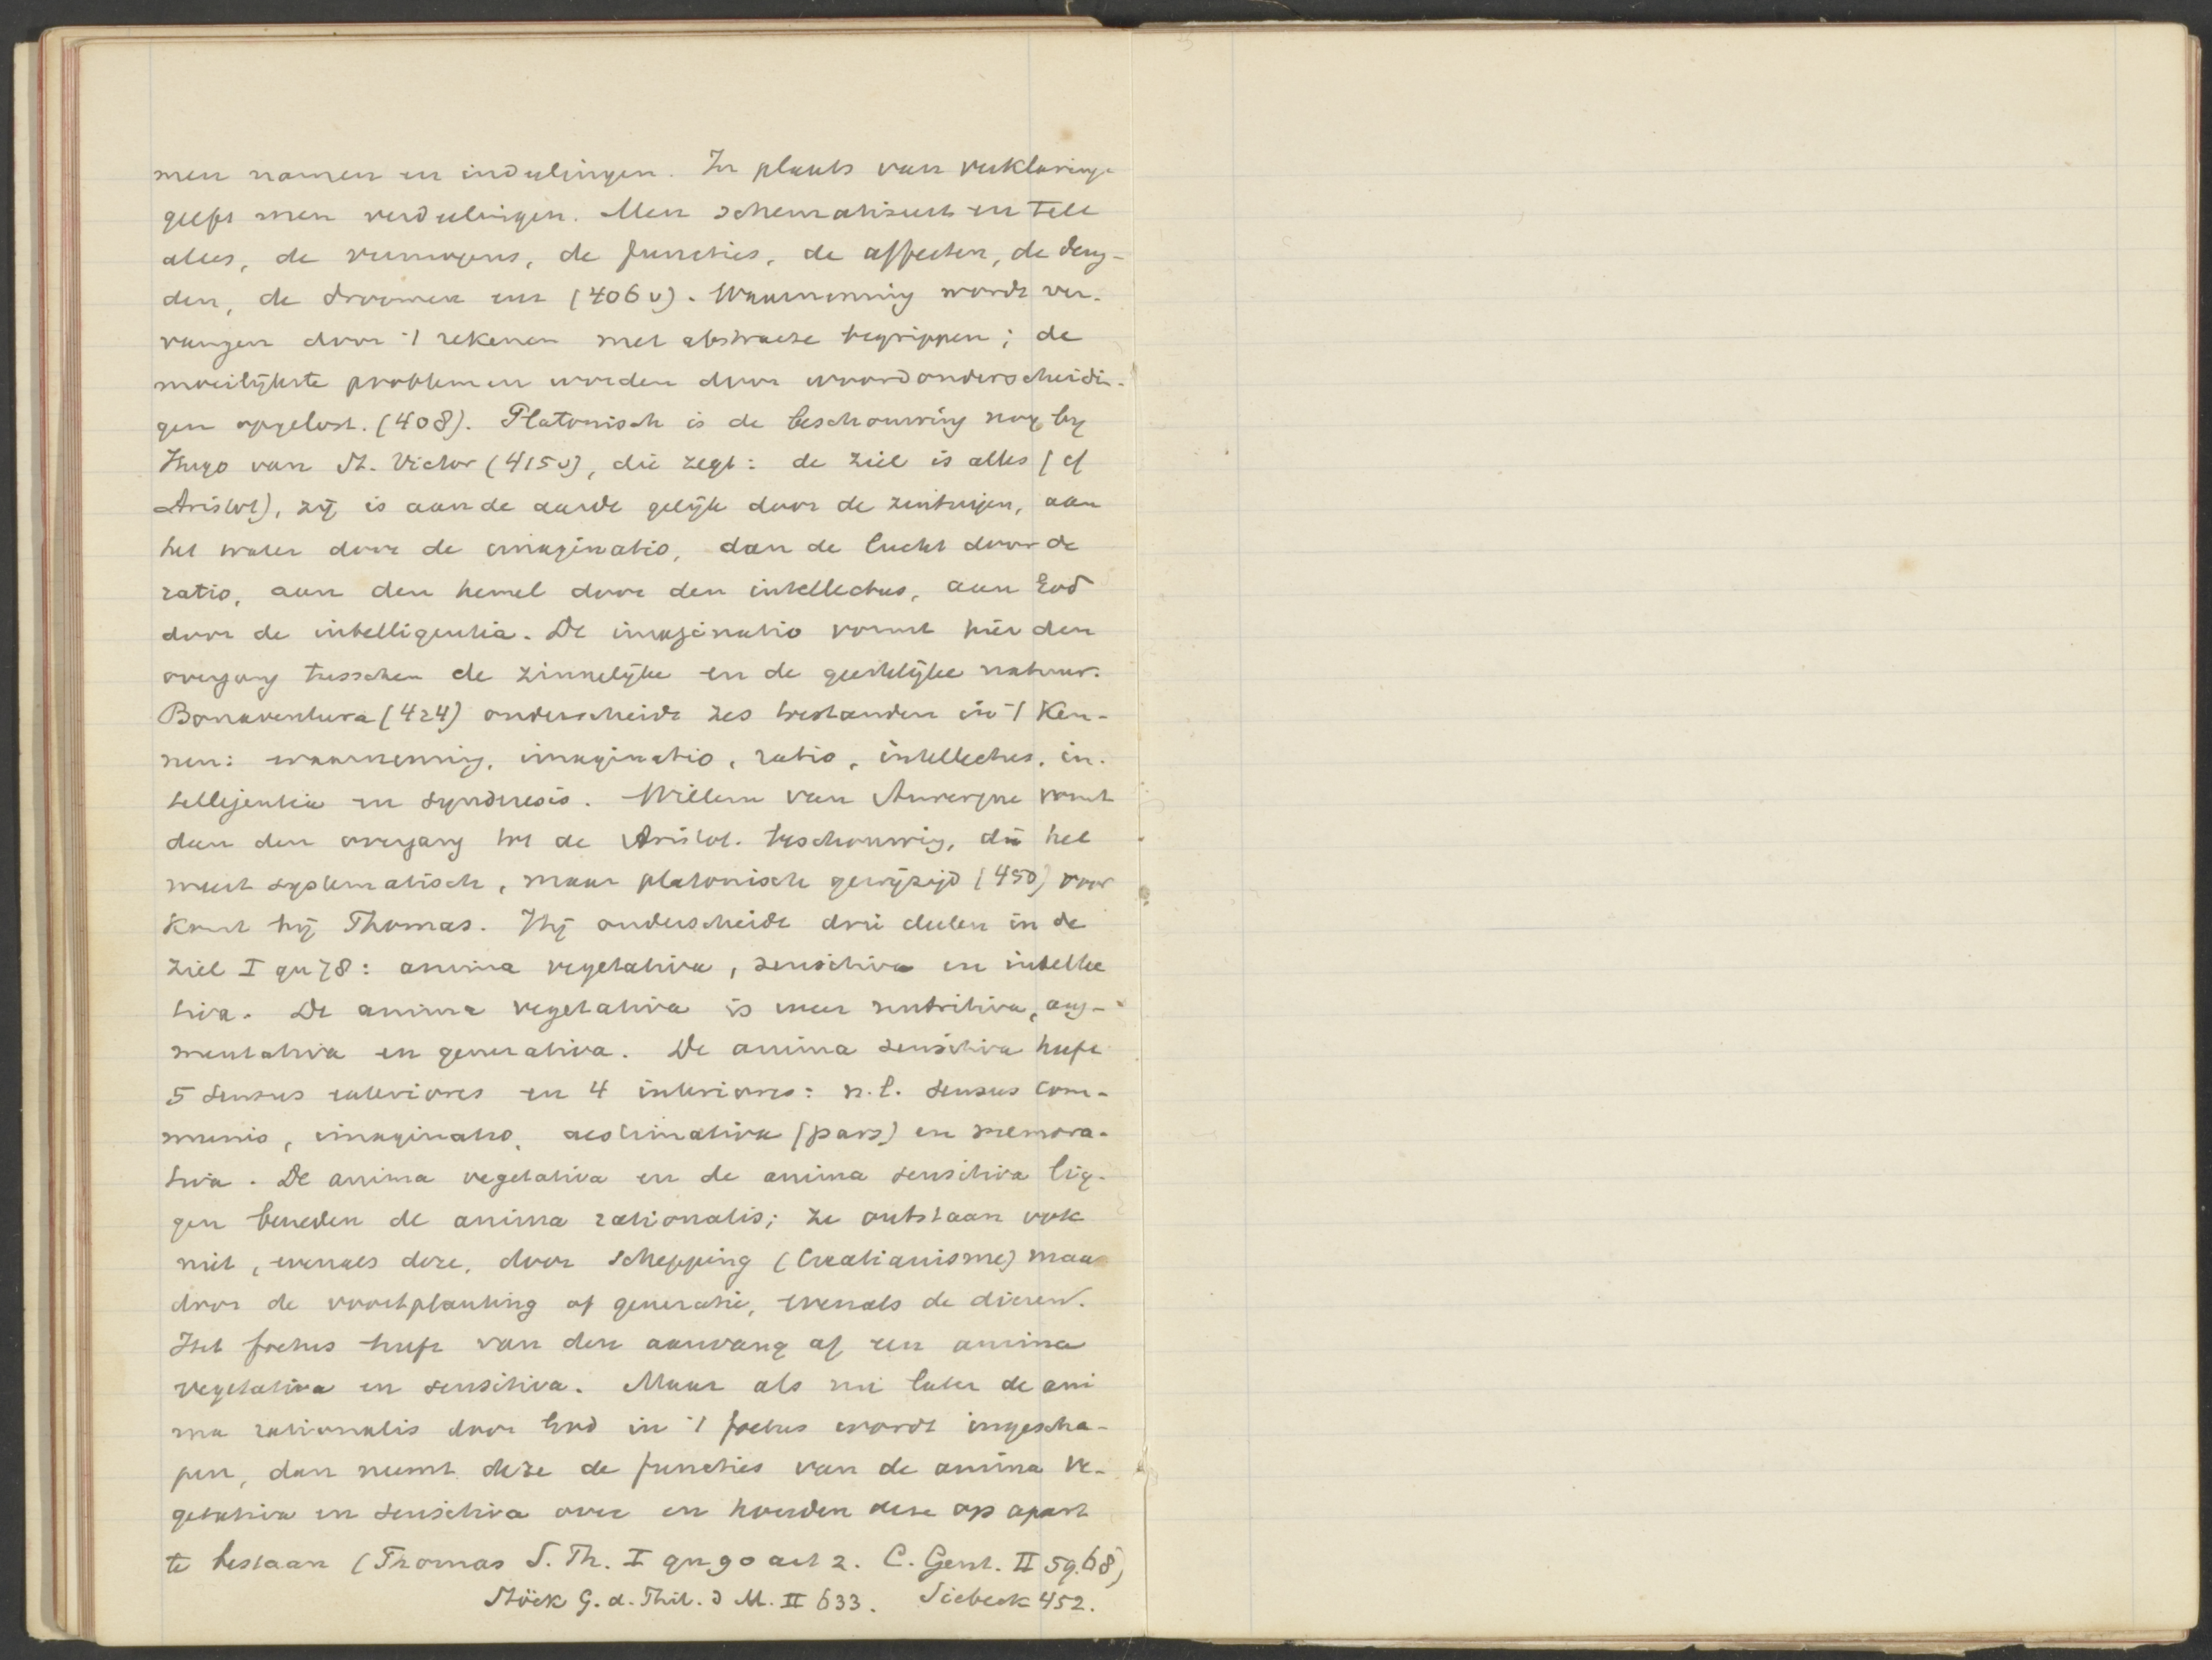 men namen en indeelingen. In plaats van verklaring-
geeft men verdeelingen. Men schematiseert en telt
alles, de vermogens, de functies, de affecten, de deug-
den, de droomen enz (406v). Waarneming wordt ver-
vangen door 't rekenen met abstracte begrippen; de
moeilijkste problemen worden door woordonderscheidin-
gen opgelost. (408). Platonisch is de beschouwing nog by
Hugo van St. Victor (415v), die zegt: de ziel is alles (cf
Aristot), zij is aan de aarde gelijk door de zintuigen, aan
het water door de imaginatio, aan de lucht door de
ratio, aan den hemel door den intellectus, aan God
door de intelligentia. De imaginatio vormt hier den
overgang tusschen de zinnelijke en de geestelijke natuur.
Bonaventura (424) onderscheidt zes bestanden in 't Ken-
nen: waarneming, imaginatio, ratio, intellectus, in-
telligentia en synderesis. Willem van Auvergne vormt
dan den overgang tot de Aristot. beschouwing, die het
meest systematisch, maar platonisch gewijzigd (450) voor
komt bij Thomas. Hij onderscheidt drie deelen in de
ziel I qu 78: anima vegetativa, sensitiva en intellec
tiva. De anima vegetativa is weer nutritiva, aug-
mentativa en generativa. De anima sensitiva heeft
5 sensus exteriores en 4 interiores: n.l. sensus com-
munis, imaginatio, aestimativa (pars) en memora-
tiva. De anima vegetativa en de anima sensitiva lig-
gen beneden de anima rationalis; ze ontstaan ook
niet, evenals deze, door schepping (Creatianisme) maar
door de voortplanting of generatie, evenals de dieren.
Het foetus heeft van den aanvang af een anima
vegetativa en sensitiva. Maar als nu later de ani
ma rationalis door God in 't foetus wordt ingescha-
pen, dan neemt deze de functies van de anima ve-
getativa en sensitiva over en houden deze op apart
te bestaan (Thomas S. Th. I qu 90 art 2. C. Gent. II 59.68)
Stöck G. d. Phil. d M. II 633. Siebeck 452.